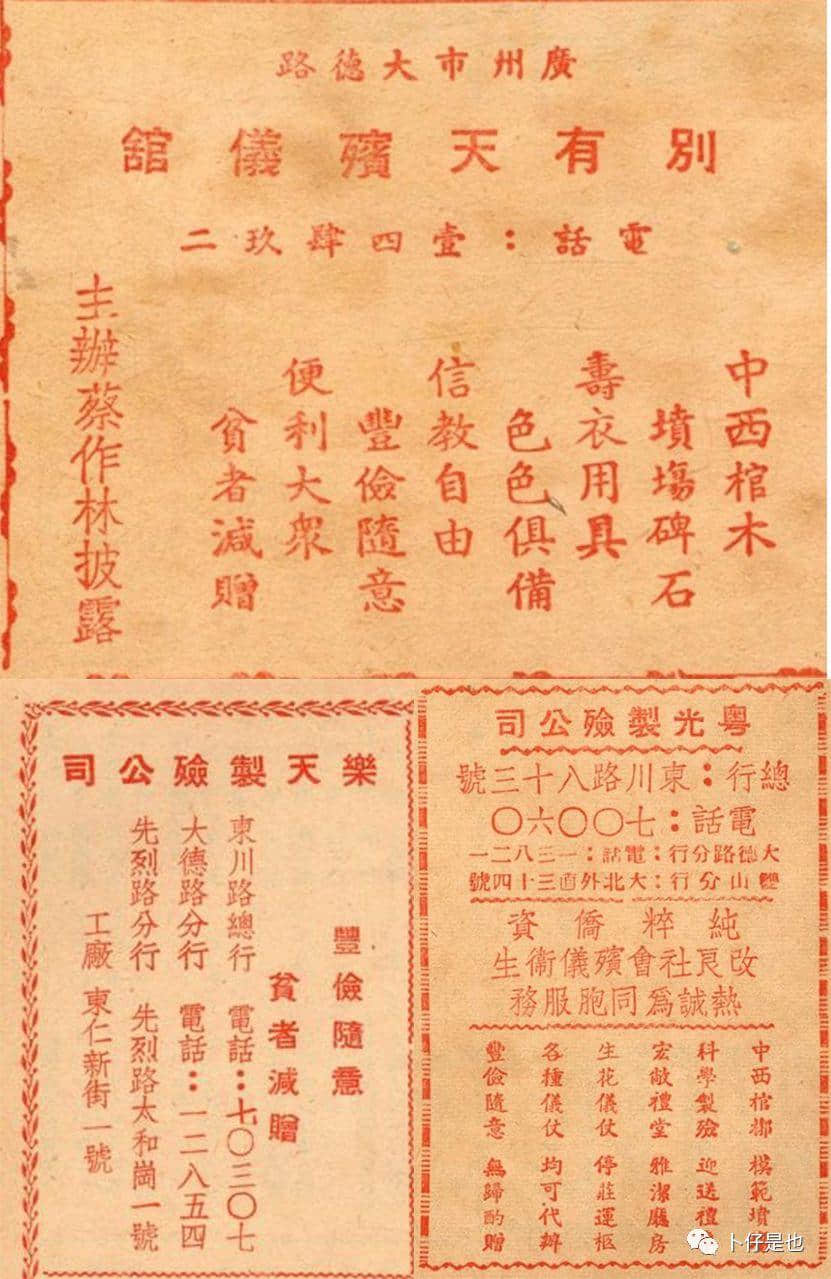 廣州市大德路
別有天殯儀館
電話：壹四肆玖二
中西棺木
墳塲碑石
壽衣用具
色色俱備
信教自由
豐儉隨意
便利大衆
貧者減贈
主辦蔡作林披露
樂天製殮公司
豐儉隨意
貧者減贈
東川路總行 電話：七〇三〇七
大德路分行 電話：一二八五四
先烈路分行 先烈路太和崗一號
工廠 東仁新街一號
粵光製殮公司
總行：東川路八十三號
電話：七〇〇六〇
大德路分行：電話：一三八二一
山分行：大北外直三十四號
純粹僑資
改良社會殯儀衞生
熱誠爲同胞服務
中西棺槨 模範墳
科學製殮 迎送禮
宏敞禮堂 雅潔廳房
生花儀仗 停莊運柩
各種儀仗 均可代辦
豐儉隨意 無歸酌贈
卜仔是也